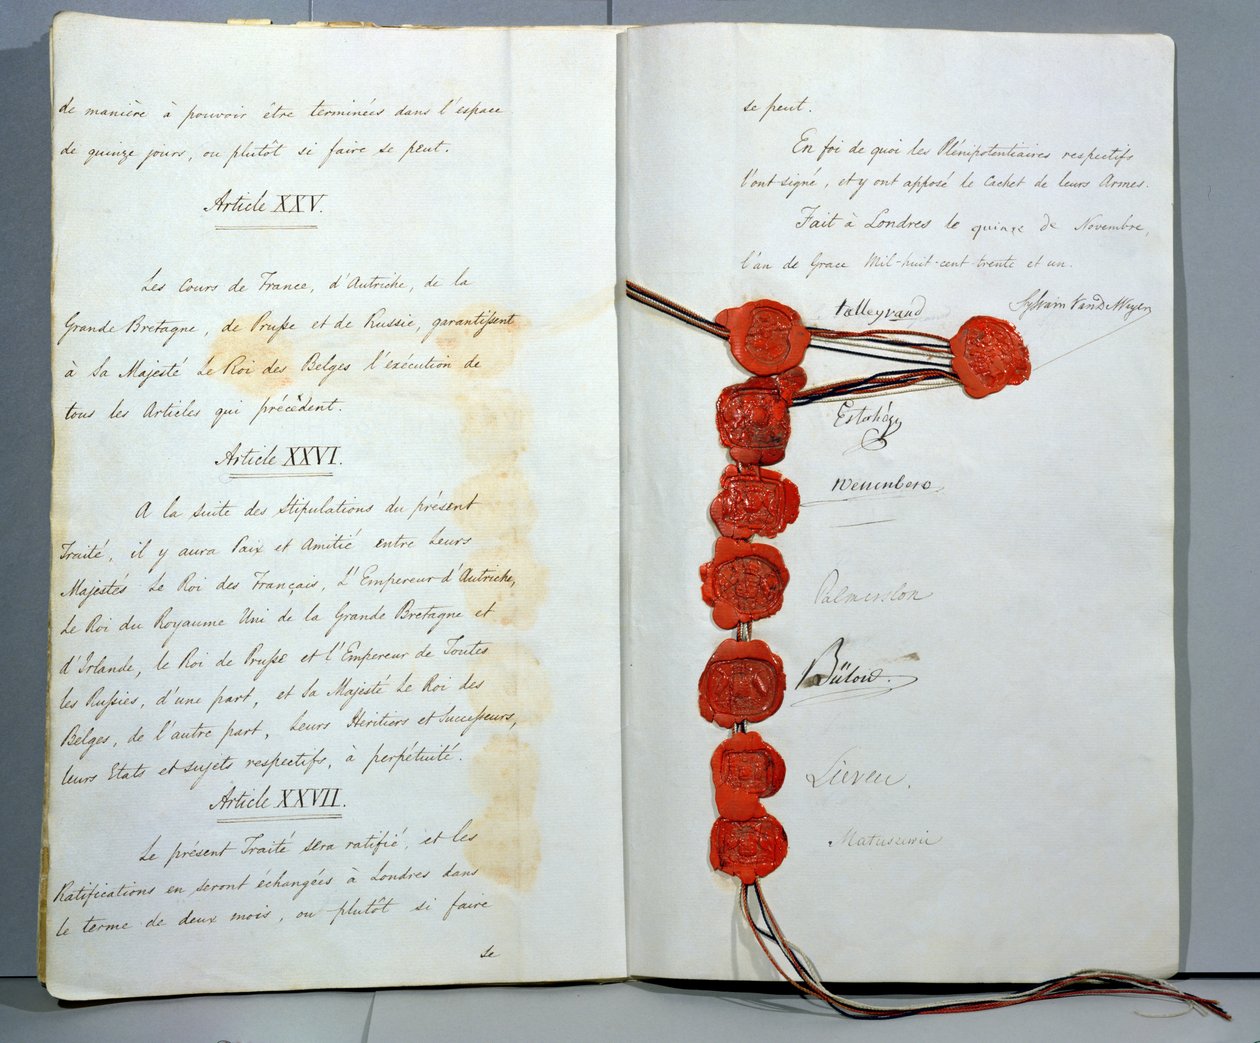 de manière à pouvoir être terminées dans l'espace
de quinze jours, ou plutôt si faire se peut.
Article XXV.
Les Cours de France, d'Autriche, de la
Grande Bretagne, de Prusse et de Russie, garantissent
à Sa Majesté le Roi des Belges l'exécution de
tous les Articles qui précèdent.
Article XXVI.
A la suite des Stipulations du présent
Traité, il y aura Paix et Amitié entre Leurs
Majestés Le Roi des Français, L'Empereur d'Autriche,
Le Roi du Royaume Uni de la Grande Bretagne et
d'Irlande, le Roi de Prusse et l'Empereur de Toutes
les Russies, d'une part, et Sa Majesté Le Roi des
Belges, de l'autre part, Leurs Héritiers et Successeurs,
leurs Etats et sujets respectifs, à perpétuité.
Article XXVII.
Le présent Traité sera ratifié, et les
Ratifications en seront échangées à Londres dans
le terme de deux mois, ou plutôt si faire
se
se peut.
En foi de quoi les Plénipotentiaires respectifs
l'ont signé, et y ont apposé le Cachet de leurs Armes.
Fait à Londres le quinze de Novembre,
l'an de Grace Mil-huit-cent trente et un.
talleyrand
Sylvain Van De Weyer
Esterházy
Wessenberg
Palmerston
Bülow.
Lieven.
Matuszewic